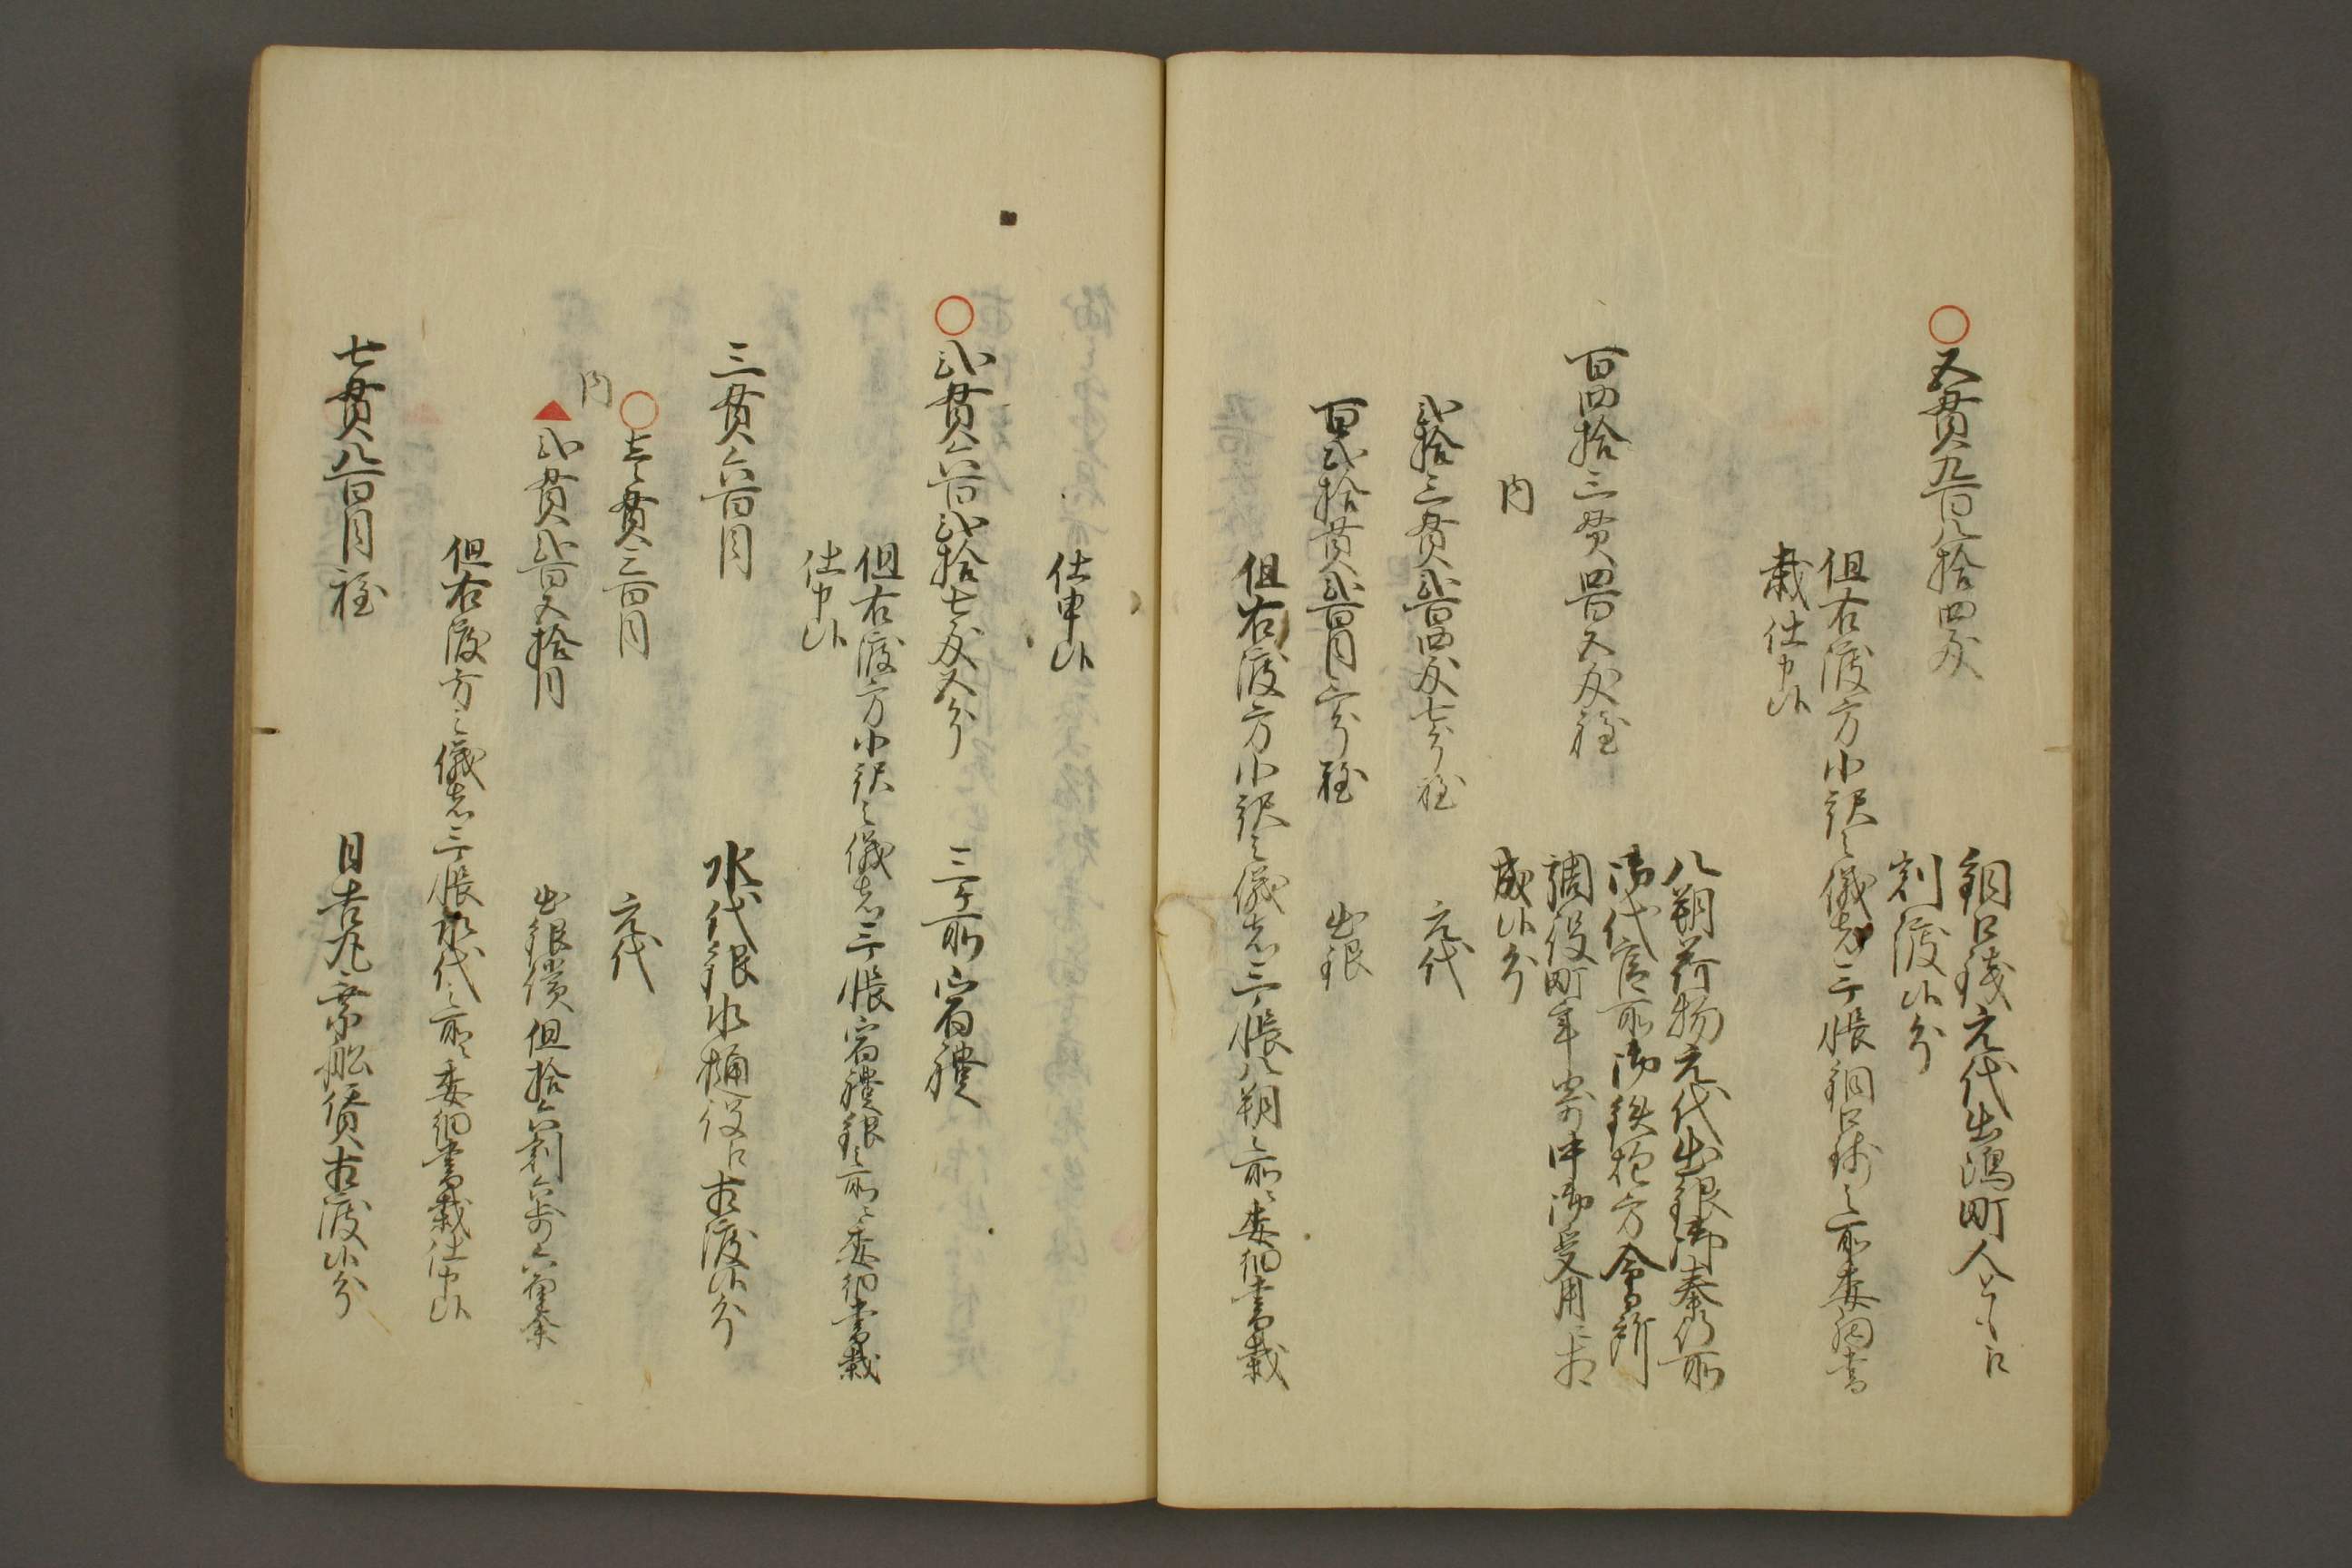 ○五貫九百八拾四匁
銅口銭元代出嶋町人ともへ
割渡候分
但右渡方小訳之儀者三ノ帳銅口銭之所委細書
載仕申候
百四拾三貫四百五匁程
八朔荷物元代出銀御奉行所
御代官所御鉄炮方会所
調役町年寄中御受用ニ相
成候分
内
弐拾三貫弐百四匁七分程
元代
百弐拾貫弐百目六分程
出銀
但右渡方小訳之儀者三ノ帳八朔之所ニ委細書載
仕申候
○弐貫六百弐拾七匁五分
三ケ所宿礼
但右渡方小訳之儀者三ノ帳宿礼銀之所ニ委細書載
仕申候
三貫六百目
水代銀水桶役ニ相渡候分
内
○壱貫三百目
元代
▲弐貫弐百五拾目
出銀償但拾六割六歩六厘余
但右渡方之儀者三ノ帳水代之所ニ委細書載仕申候
七貫八百目程
日吉丸乗船賃相渡候分